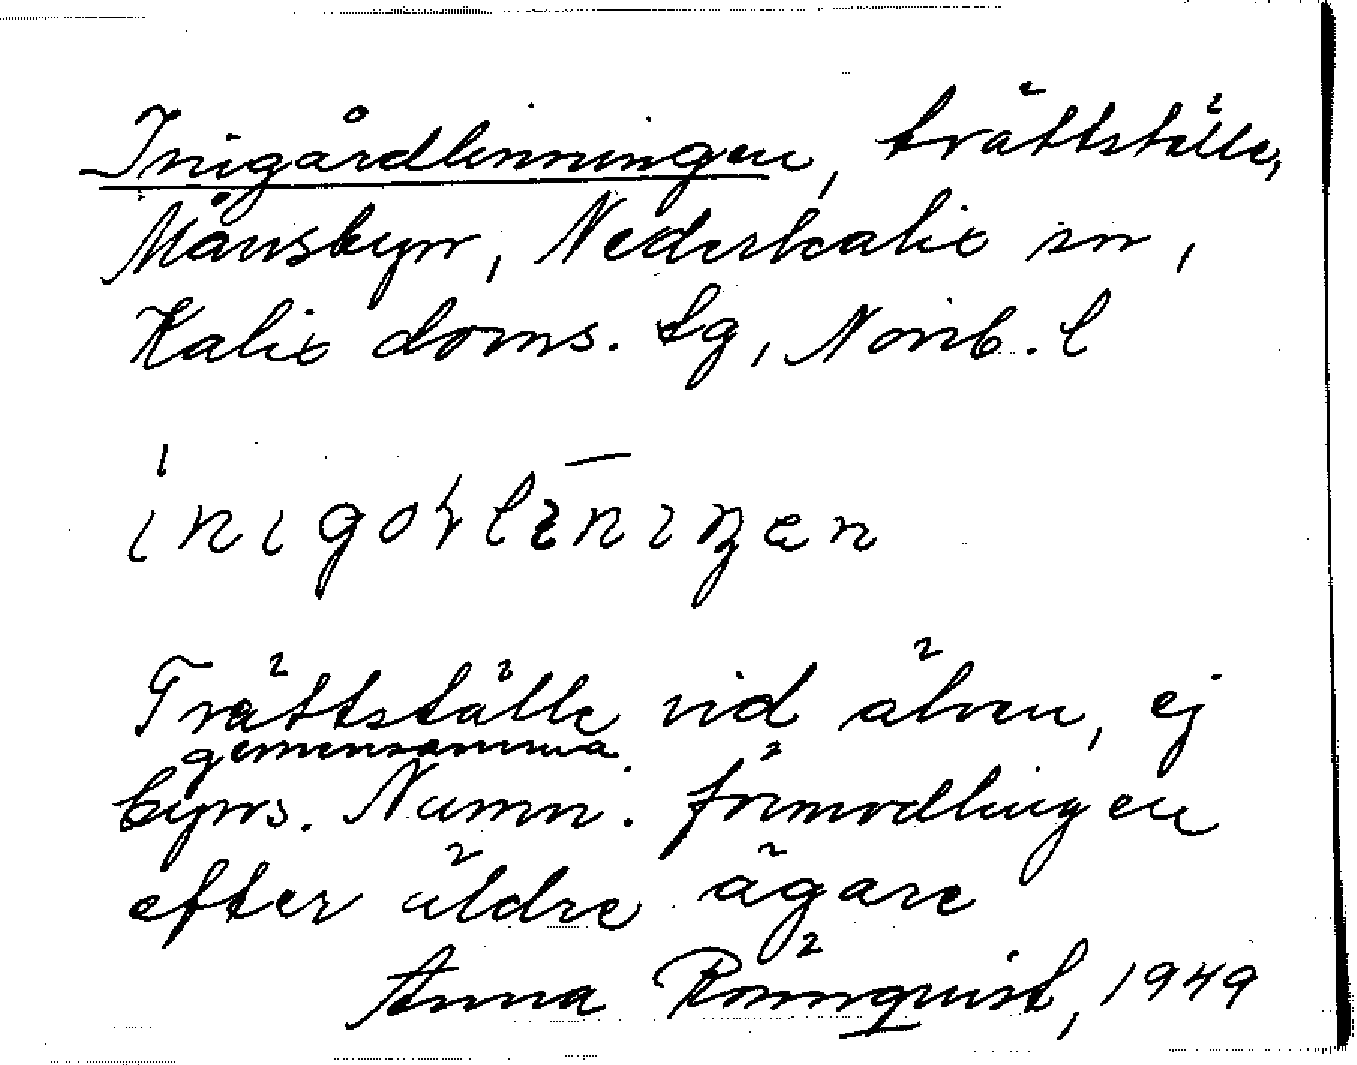 Inigårdlenningen, tvättställe,
Månsbyn, Nederkalix sn,
Kalix doms. lg, Norrb. l
Tvättställe vid älven, ej
gemensamma
byns. Namn. förmodlingen
efter äldre ägare
Anna Rönnquist, 1949